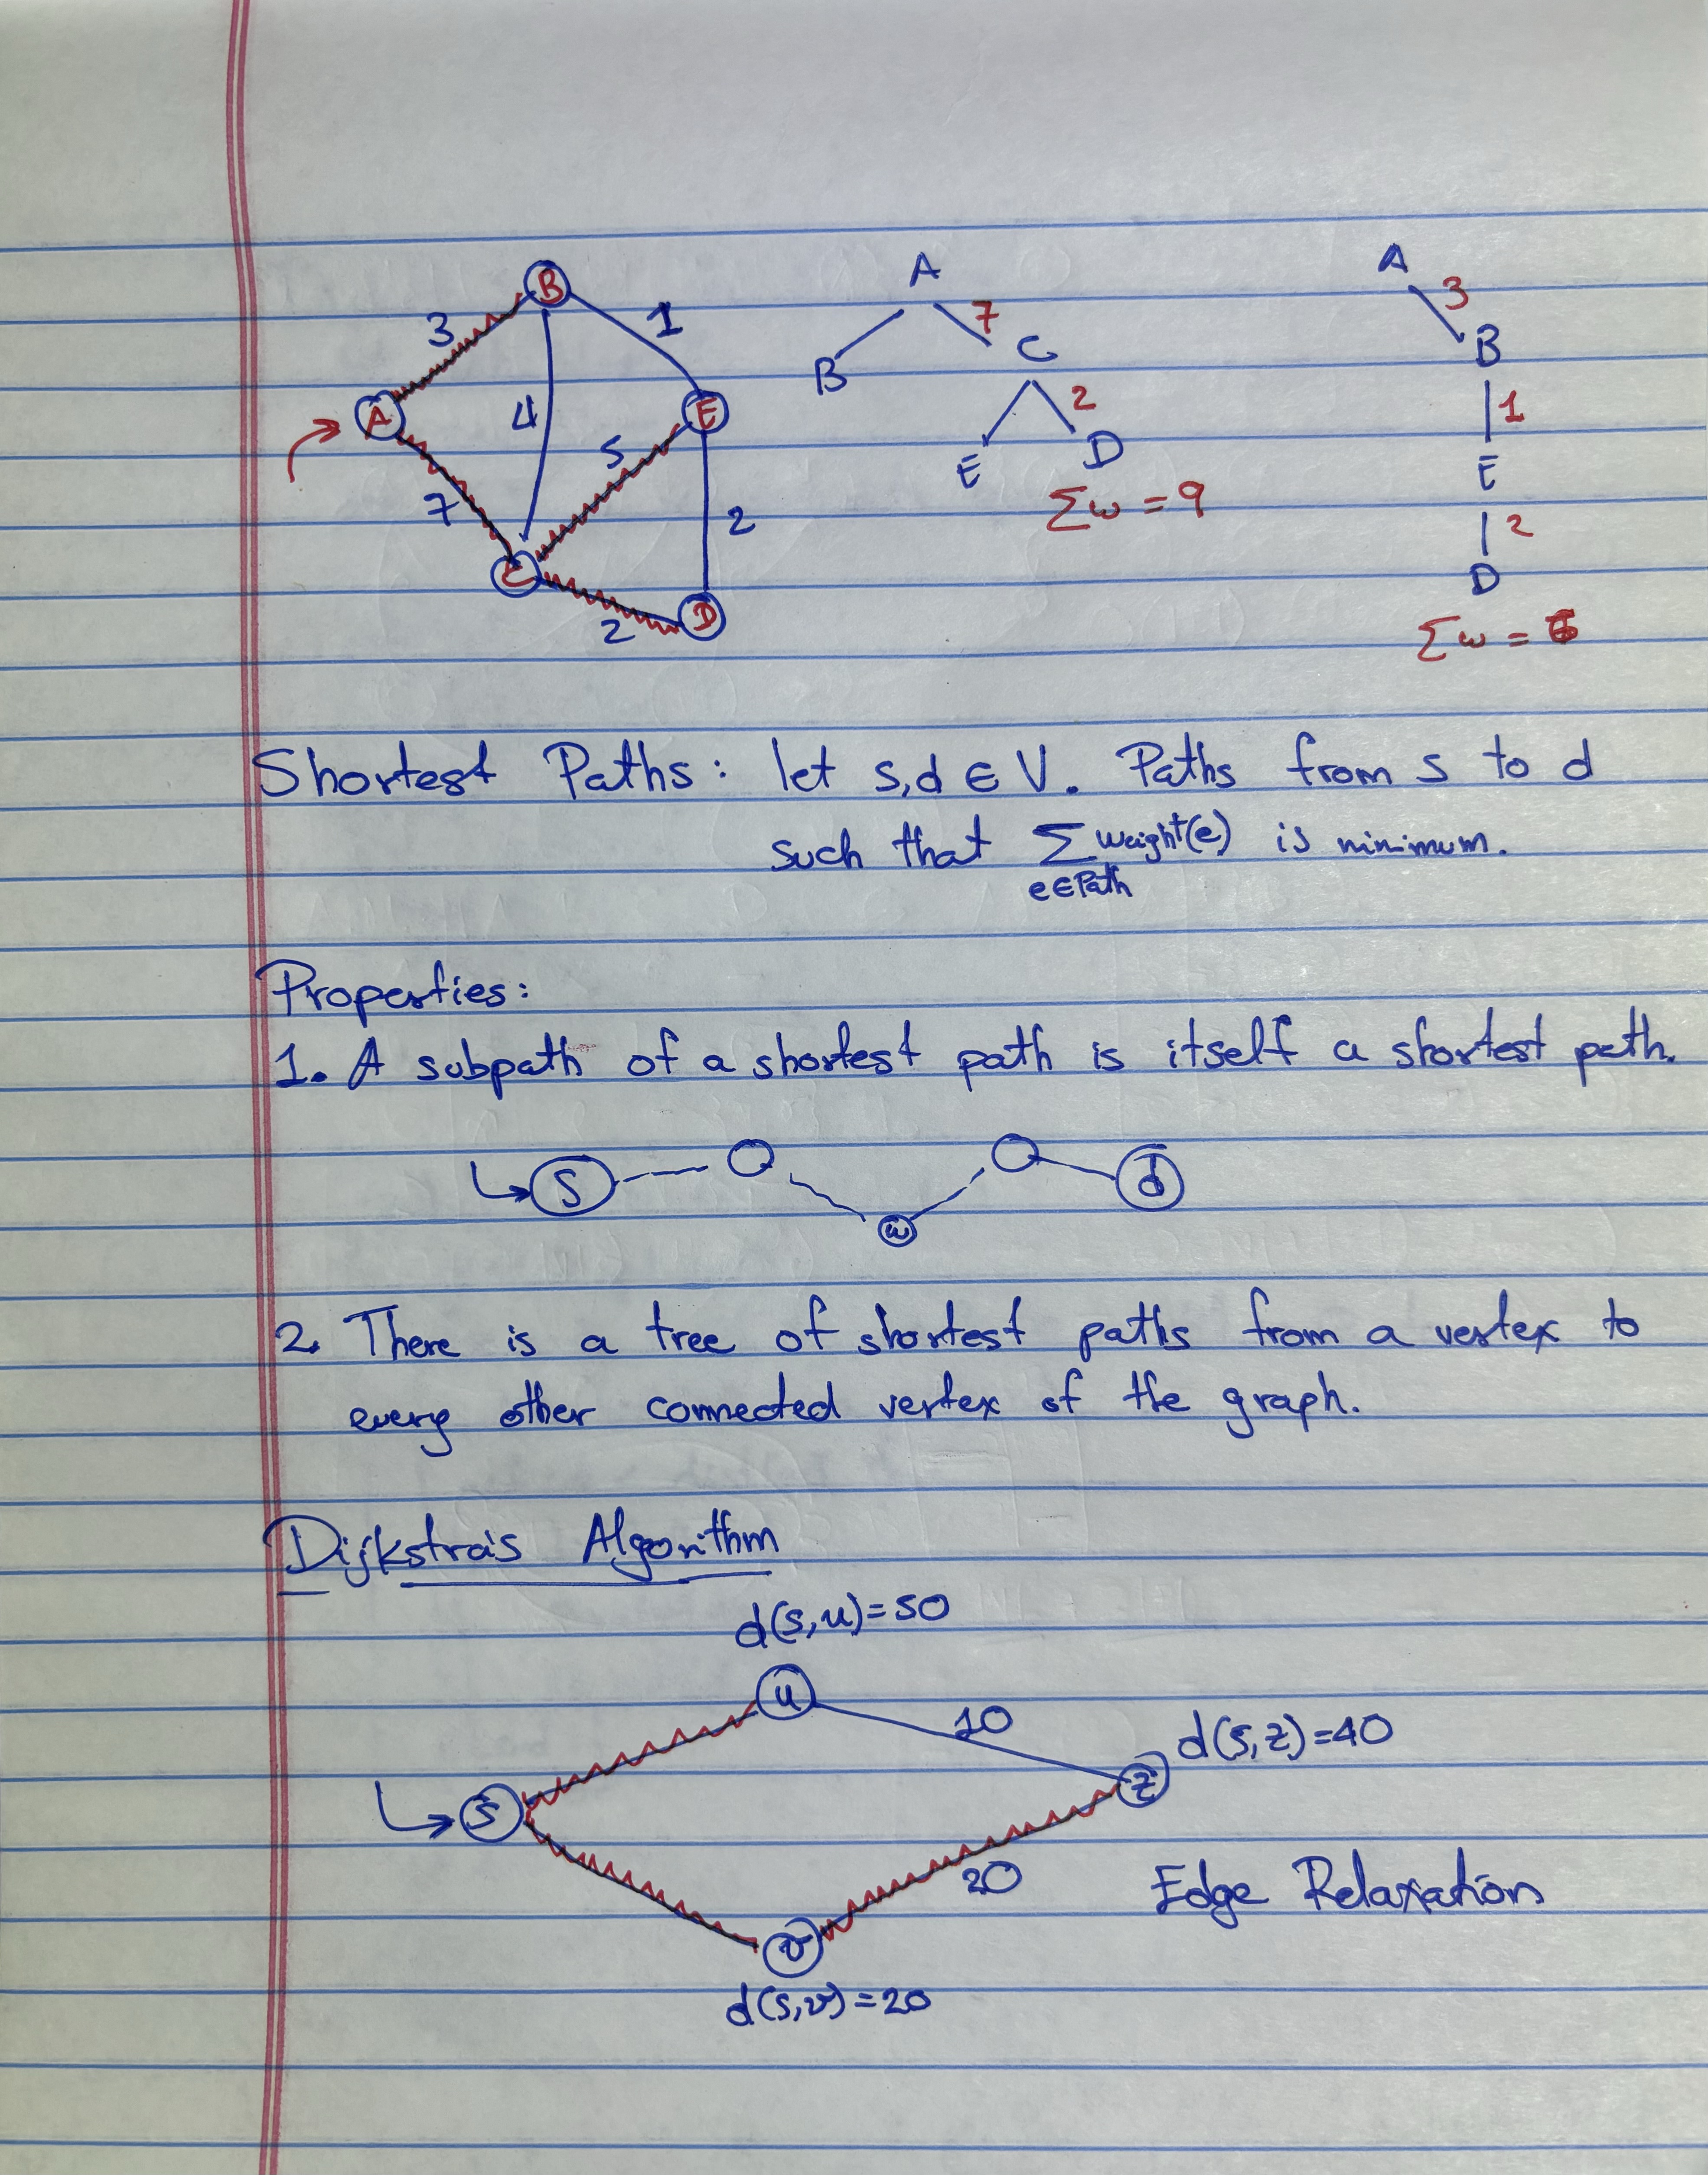 B
3
1
A
4
E
5
7
2
C
2
D
A
7
B
C
2
E
D
Σw = 9
A
3
B
1
E
2
D
Σw = 6
Shortest Paths: let s,d ∈ V. Paths from s to d
such that Σ weight(e) is minimum.
e∈Path
Properties:
1. A subpath of a shortest path is itself a shortest path.
s
w
d
2. There is a tree of shortest paths from a vertex to
every other connected vertex of the graph.
Dijkstra's Algorithm
d(s,u)=50
u
10
d(s,z)=40
z
s
20
Edge Relaxation
v
d(s,v)=20